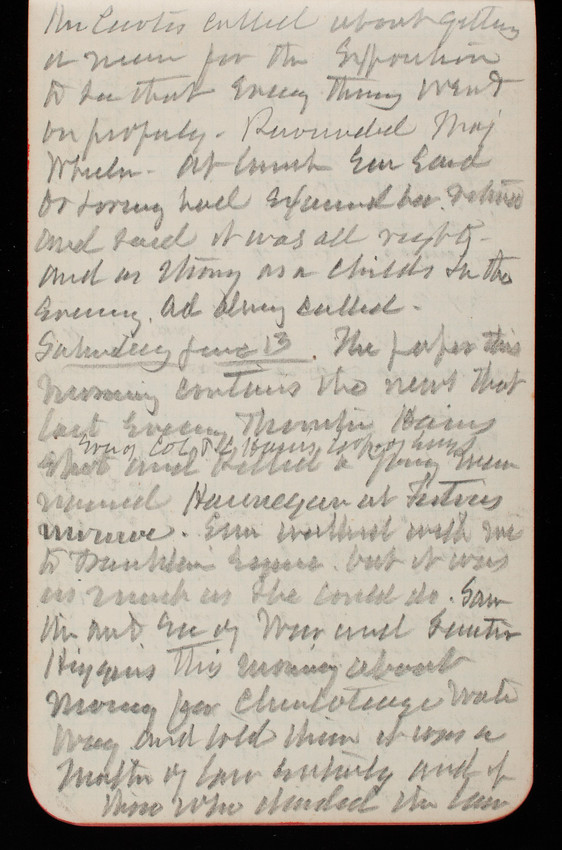 Mr Curtis called about getting
a man for the Exposition
to see that every thing went
on properly -  Maj
Wheeler - At lunch Em said
Dr Loring had examined her
and said it was all right -
and as strong as a childs In the
evening. Ad Almy called -
Saturday June 13. The paper this
morning contains the news that
last evening Thornton Hains
son of Col P C Hains Corps of Engs
shot and killed a young man
named Hannegan at Fortress
Monroe. Em walked with me
to Franklin Square but it was
as much as she could do. Saw
the Act Sec of War and Senator
Higgins this morning about
money for Water
way and told them it was a
matter of law entirely and if
those who the law